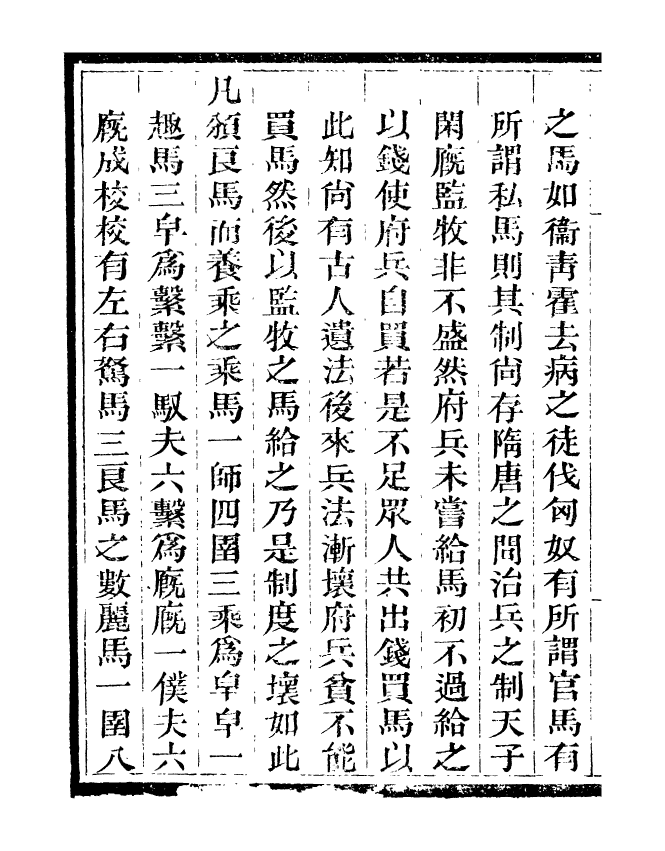 之馬如衞靑霍去病之徒伐匈奴有所謂官馬有
所謂私馬則其制尙存隋唐之間治兵之制天子
閑廐監牧非不盛然府兵未嘗給馬初不過給之
以錢使府兵自買若是不足眾人共出錢買馬以
此知尙有古人遺法後來兵法漸壞府兵貧不能
買馬然後以監牧之馬給之乃是制度之壞如此
凡頒良馬而養乘之乘馬一師四圉三乘爲皁皁一
趣馬三皁爲繫繫一馭夫六繫爲廐廐一僕夫六
廐成校校有左右駑馬三良馬之數麗馬一圉八